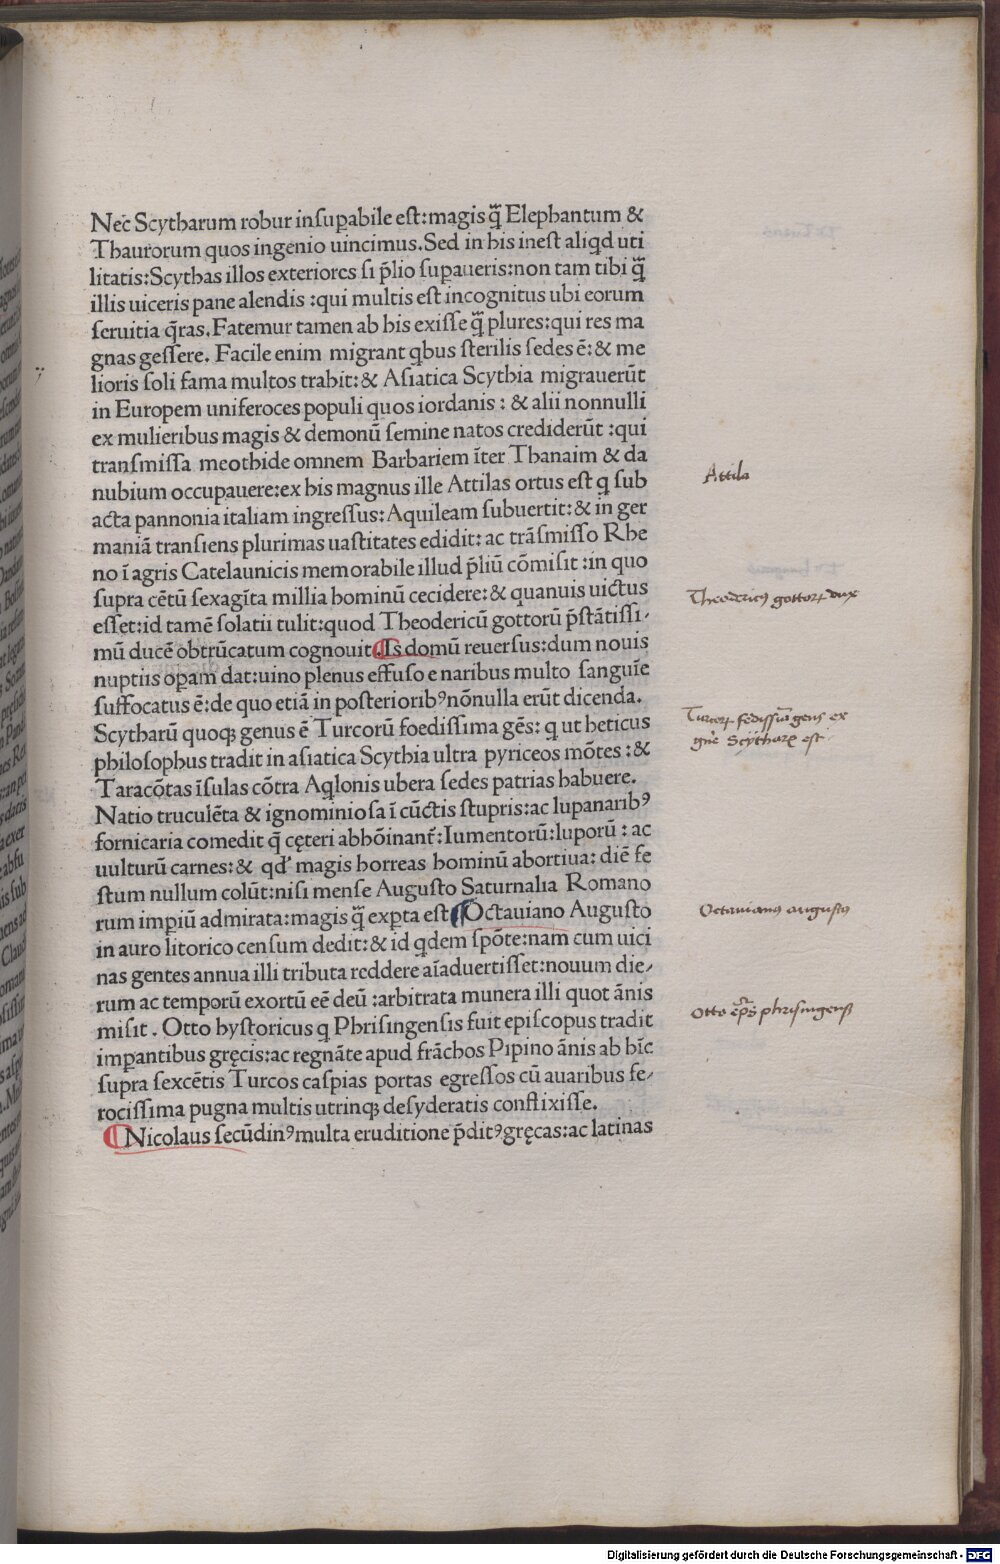 Nec Scytharum robur inſupabile eſt:magis q̃ Elephantum &
Thaurorum quos ingenio uincimus.Sed in his ineſt aliqd uti
litatis:Scythas illos exteriores ſi p̄lio ſupaueris:non tam tibi q̃
illis uiceris pane alendis :qui multis eſt incognitus ubi eorum
ſeruitia q̃ras.Fatemur tamen ab his exiſſe q̃ plures:qui res ma
gnas geſſere. Facile enim migrant qbus ſterilis ſedes ē:& me
lioris ſoli fama multos trahit:& Aſiatica Scythia migrauerūt
in Europem uniferoces populi quos iordanis : & alii nonnulli
ex mulieribus magis & demonū ſemine natos crediderūt :qui
tranſmiſſa meothide omnem Barbariem īter Thanaim & da
nubium occupauere:ex his magnus ille Attilas ortus eſt q ſub
acta pannonia italiam ingreſſus:Aquileam ſubuertit:& in ger
maniā tranſiens plurimas uaſtitates edidit: ac trāſmiſſo Rhe
no ī agris Catelaunicis memorabile illud p̄liū cōmiſit :in quo
ſupra cētū ſexagīta millia hominū cecidere:& quanuis uictus
eſſet:id tamē ſolatii tulit:quod Theodericū gottorū p̄ſtātiſſi⸗
mū ducē obtrūcatum cognouit.Is domū reuerſus:dum nouis
nuptiis opam dat:uino plenus effuſo e naribus multo ſanguīe
ſuffocatus ē:de quo etiā in poſteriorib⁹nōnulla erūt dicenda.
Scytharū quoqꝫ genus ē Turcorū foediſſima gēs: q ut heticus
philoſophus tradit in aſiatica Scythia ultra pyriceos mōtes :&
Taracōtas īſulas cōtra Aqlonis ubera ſedes patrias habuere.
Natio truculēta & ignominioſa ī cūctis ſtupris:ac lupanarib⁹
fornicaria comedit q̄ cęteri abhōinant̄:Iumentorū:luporū : ac
uulturū carnes:& qd̕ magis horreas hominū abortiua: diē fe
ſtum nullum colūt:niſi menſe Auguſto Saturnalia Romano
rum impiū admirata:magis q̃ expta eſt Octauiano Auguſto
in auro litorico cenſum dedit:& id qdem ſpōte:nam cum uici
nas gentes annua illi tributa reddere aīaduertiſſet:nouum die⸗
rum ac temporū exortū eē deū :arbitrata munera illi quot ānis
miſit . Otto hyſtoricus q Phriſingenſis fuit epiſcopus tradit
impantibus gręcis:ac regnāte apud frāchos Pipino ānis ab hīc
ſupra ſexcētis Turcos caſpias portas egreſſos cū auaribus fe⸗
rociſſima pugna multis utrinqꝫ deſyderatis conflixiſſe.
Nicolaus ſecūdin⁹multa eruditione p̄dit⁹gręcas:ac latinas
Attila
Theodericꝰ gottorꝝ dux
Turcorꝝ fediſſima gens ex
gñe Scytharꝝ eſt
Octavianus auguſtꝰ
Otto ep̄s phriſingenſis
Digitalisierung gefördert durch die Deutsche Forschungsgemeinschaft - DFG